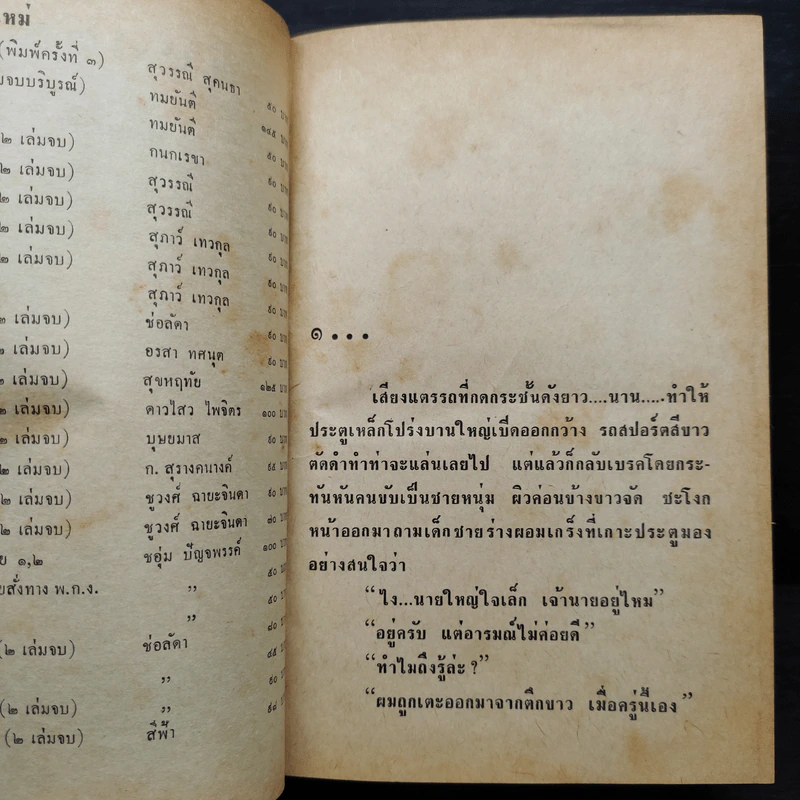 ใหม่
(พิมพ์ครั้งที่ ๓) สุวรรณี สุคนธา ๕๐ บ
จบบริบูรณ์) ทมยันตี ๑๔๕ บาท
ทมยันตี ๕๐ บาท
๒ เล่มจบ) กนกเรขา
๒ เล่มจบ) สุวรรณี
๒ เล่มจบ) สุวรรณี
๒ เล่มจบ) สุภาว์ เทวกุล
๒ เล่มจบ) สุภาว์ เทวกุล
สุภาว์ เทวกุล
๒ เล่มจบ) ช่อลัดา
๒ เล่มจบ) อรสา ทศนุต
๒ เล่มจบ) สุขหฤทัย ๑๒๕ บาท
๒ เล่มจบ) ดาวไสว ไพจิตร ๑๐๐ บาท
๒ เล่มจบ) บุษยมาส
๒ เล่มจบ) ก. สุรางคนางค์
๒ เล่มจบ) ชูวงศ์ ฉายะจินดา
๒ เล่มจบ) ชูวงศ์ ฉายะจินดา ๘๐ บาท
๑,๒ ชอุ่ม ปัญจพรรค์ ๑๐๐ บาท
ยสั่งทาง พ.ก.ง. ”
”
(๒ เล่มจบ) ช่อลัดา
”
(๒ เล่มจบ) ”
(๒ เล่มจบ) สีฟ้า
๑...
เสียงแตรรถที่กดกระชั้นดังยาว....นาน.....ทำให้
ประตูเหล็กโปร่งบานใหญ่เปิดออกกว้าง รถสปอร์ตสีขาว
ตัดดำทำท่าจะแล่นเลยไป แต่แล้วก็กลับเบรคโดยกระ-
ทันหันคนขับเป็นชายหนุ่ม ผิวค่อนข้างขาวจัด ชะโงก
หน้าออกมาถามเด็กชายร่างผอมเกร็งที่เกาะประตูมอง
อย่างสนใจว่า
“ไง...นายใหญ่ใจเล็ก เจ้านายอยู่ไหม”
“อยู่ครับ แต่อารมณ์ไม่ค่อยดี”
“ทำไมถึงรู้ล่ะ ?”
“ผมถูกเตะออกมาจากตึกขาว เมื่อครู่นี้เอง”